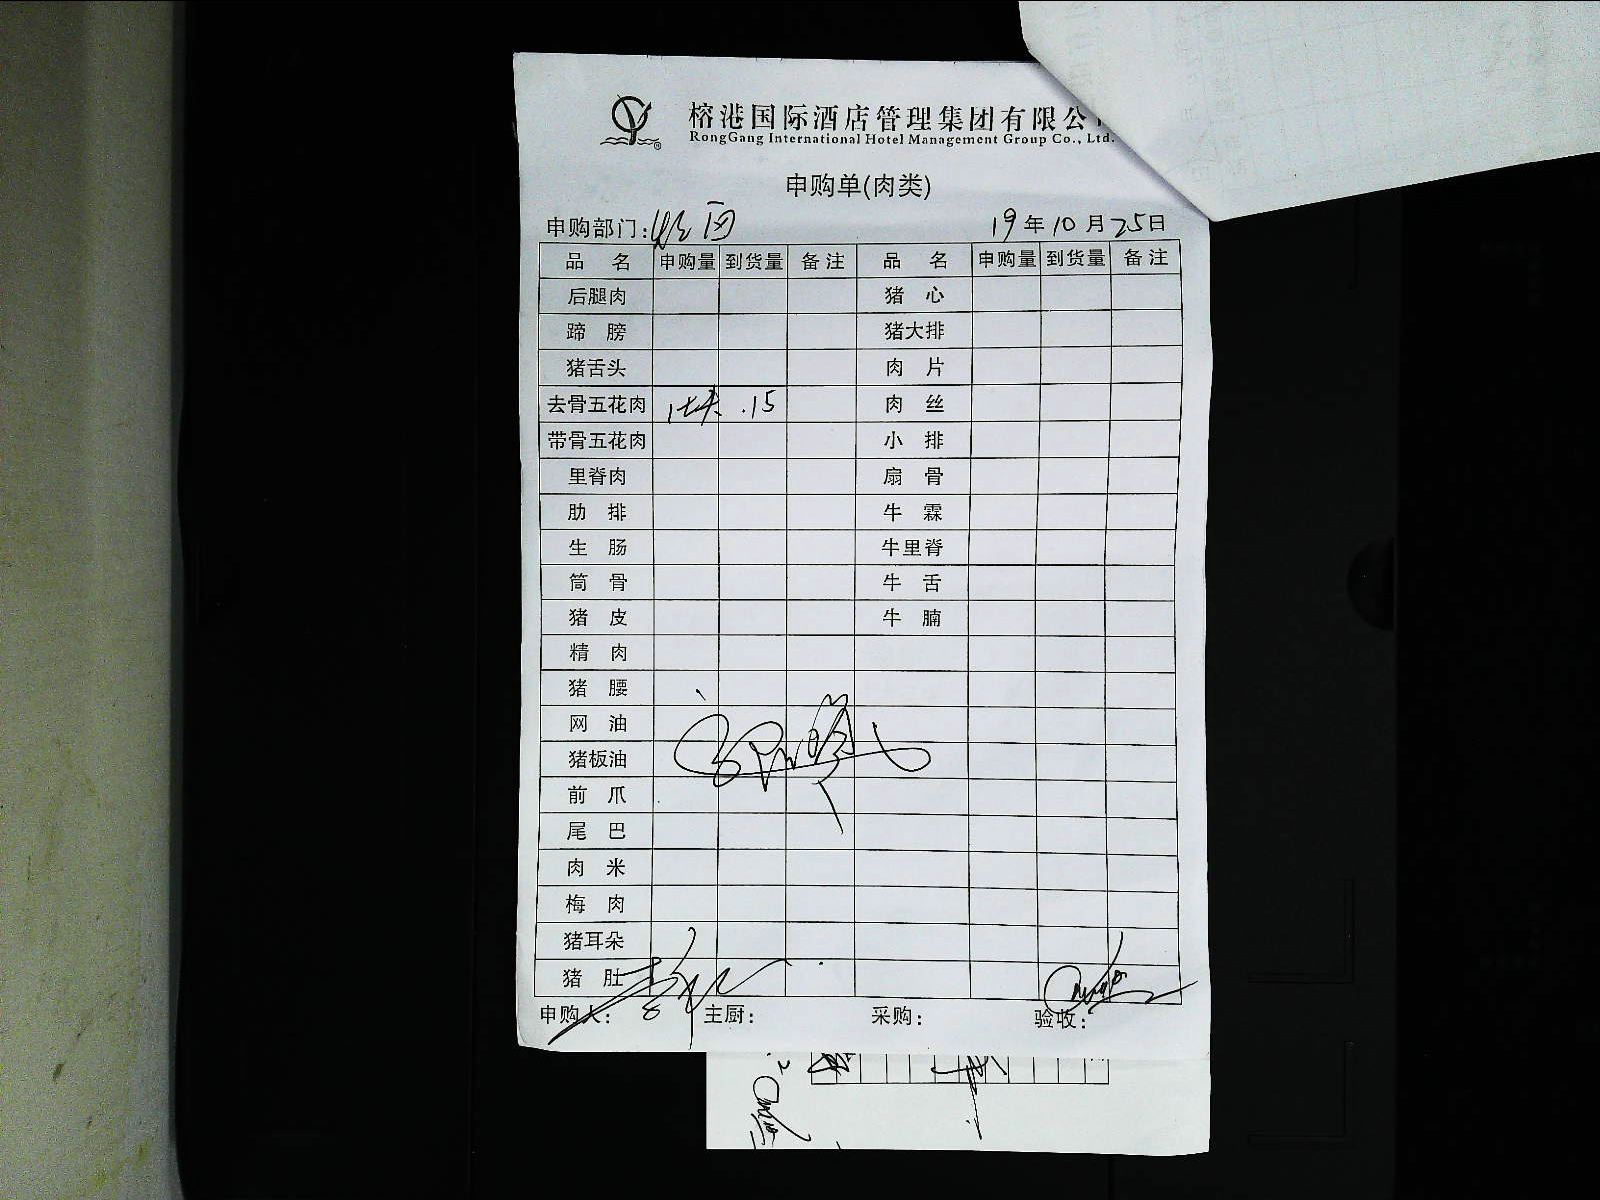 榕港国际酒店管理集团有限公
RongGang International Hotel Management Group Co., Ltd.
申购单(肉类)
申购部门: 19年10月25日
品名 申购量 到货量 备注 品名 申购量 到货量 备注
后腿肉 猪心
蹄膀 猪大排
猪舌头 肉片
去骨五花肉 .15 肉丝
带骨五花肉 小排
里脊肉 扇骨
肋排 牛霖
生肠 牛里脊
筒骨 牛舌
猪皮 牛腩
精肉
猪腰
网油
猪板油
前爪
尾巴
肉米
梅肉
猪耳朵
猪肚
申购人: 主厨: 采购: 验收: